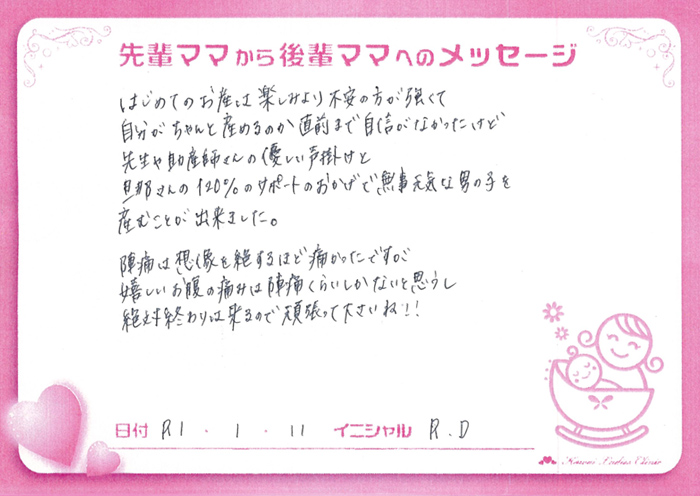 先輩ママから後輩ママへのメッセージ
はじめてのお産は楽しみより不安の方が強くて
自分がちゃんと産めるのか直前まで自信がなかったけど
先生や助産師さんの優しい声掛けと
旦那さんの120%のサポートのおかげで無事元気な男の子を
産むことが出来ました。
陣痛は想像を絶するほど痛かったですが
嬉しいお腹の痛みは陣痛くらいしかないと思うし
絶対終わりは来るので頑張って下さいね!!
日付 R1・1・11 イニシャル R.D